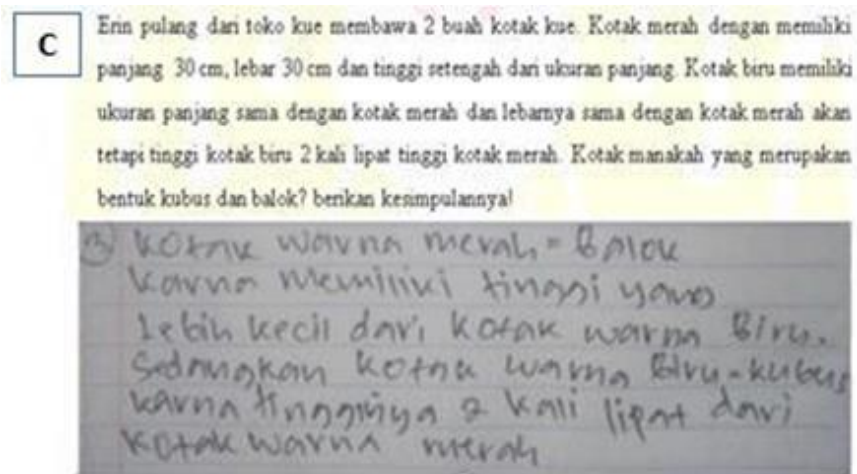 C
Erin pulang dari toko kue membawa 2 buah kotak kue. Kotak merah dengan memiliki
panjang 30 cm, lebar 30 cm dan tinggi setengah dari ukuran panjang. Kotak biru memiliki
ukuran panjang sama dengan kotak merah dan lebarnya sama dengan kotak merah akan
tetapi tinggi kotak biru 2 kali lipat tinggi kotak merah. Kotak manakah yang merupakan
bentuk kubus dan balok? berikan kesimpulannya!
3 kotak warna merah = Balok
karna memiliki tinggi yang
lebih kecil dari kotak warna Biru.
Sedangkan kotak warna Biru = kubus
karna tingginya 2 kali lipat dari
kotak warna merah